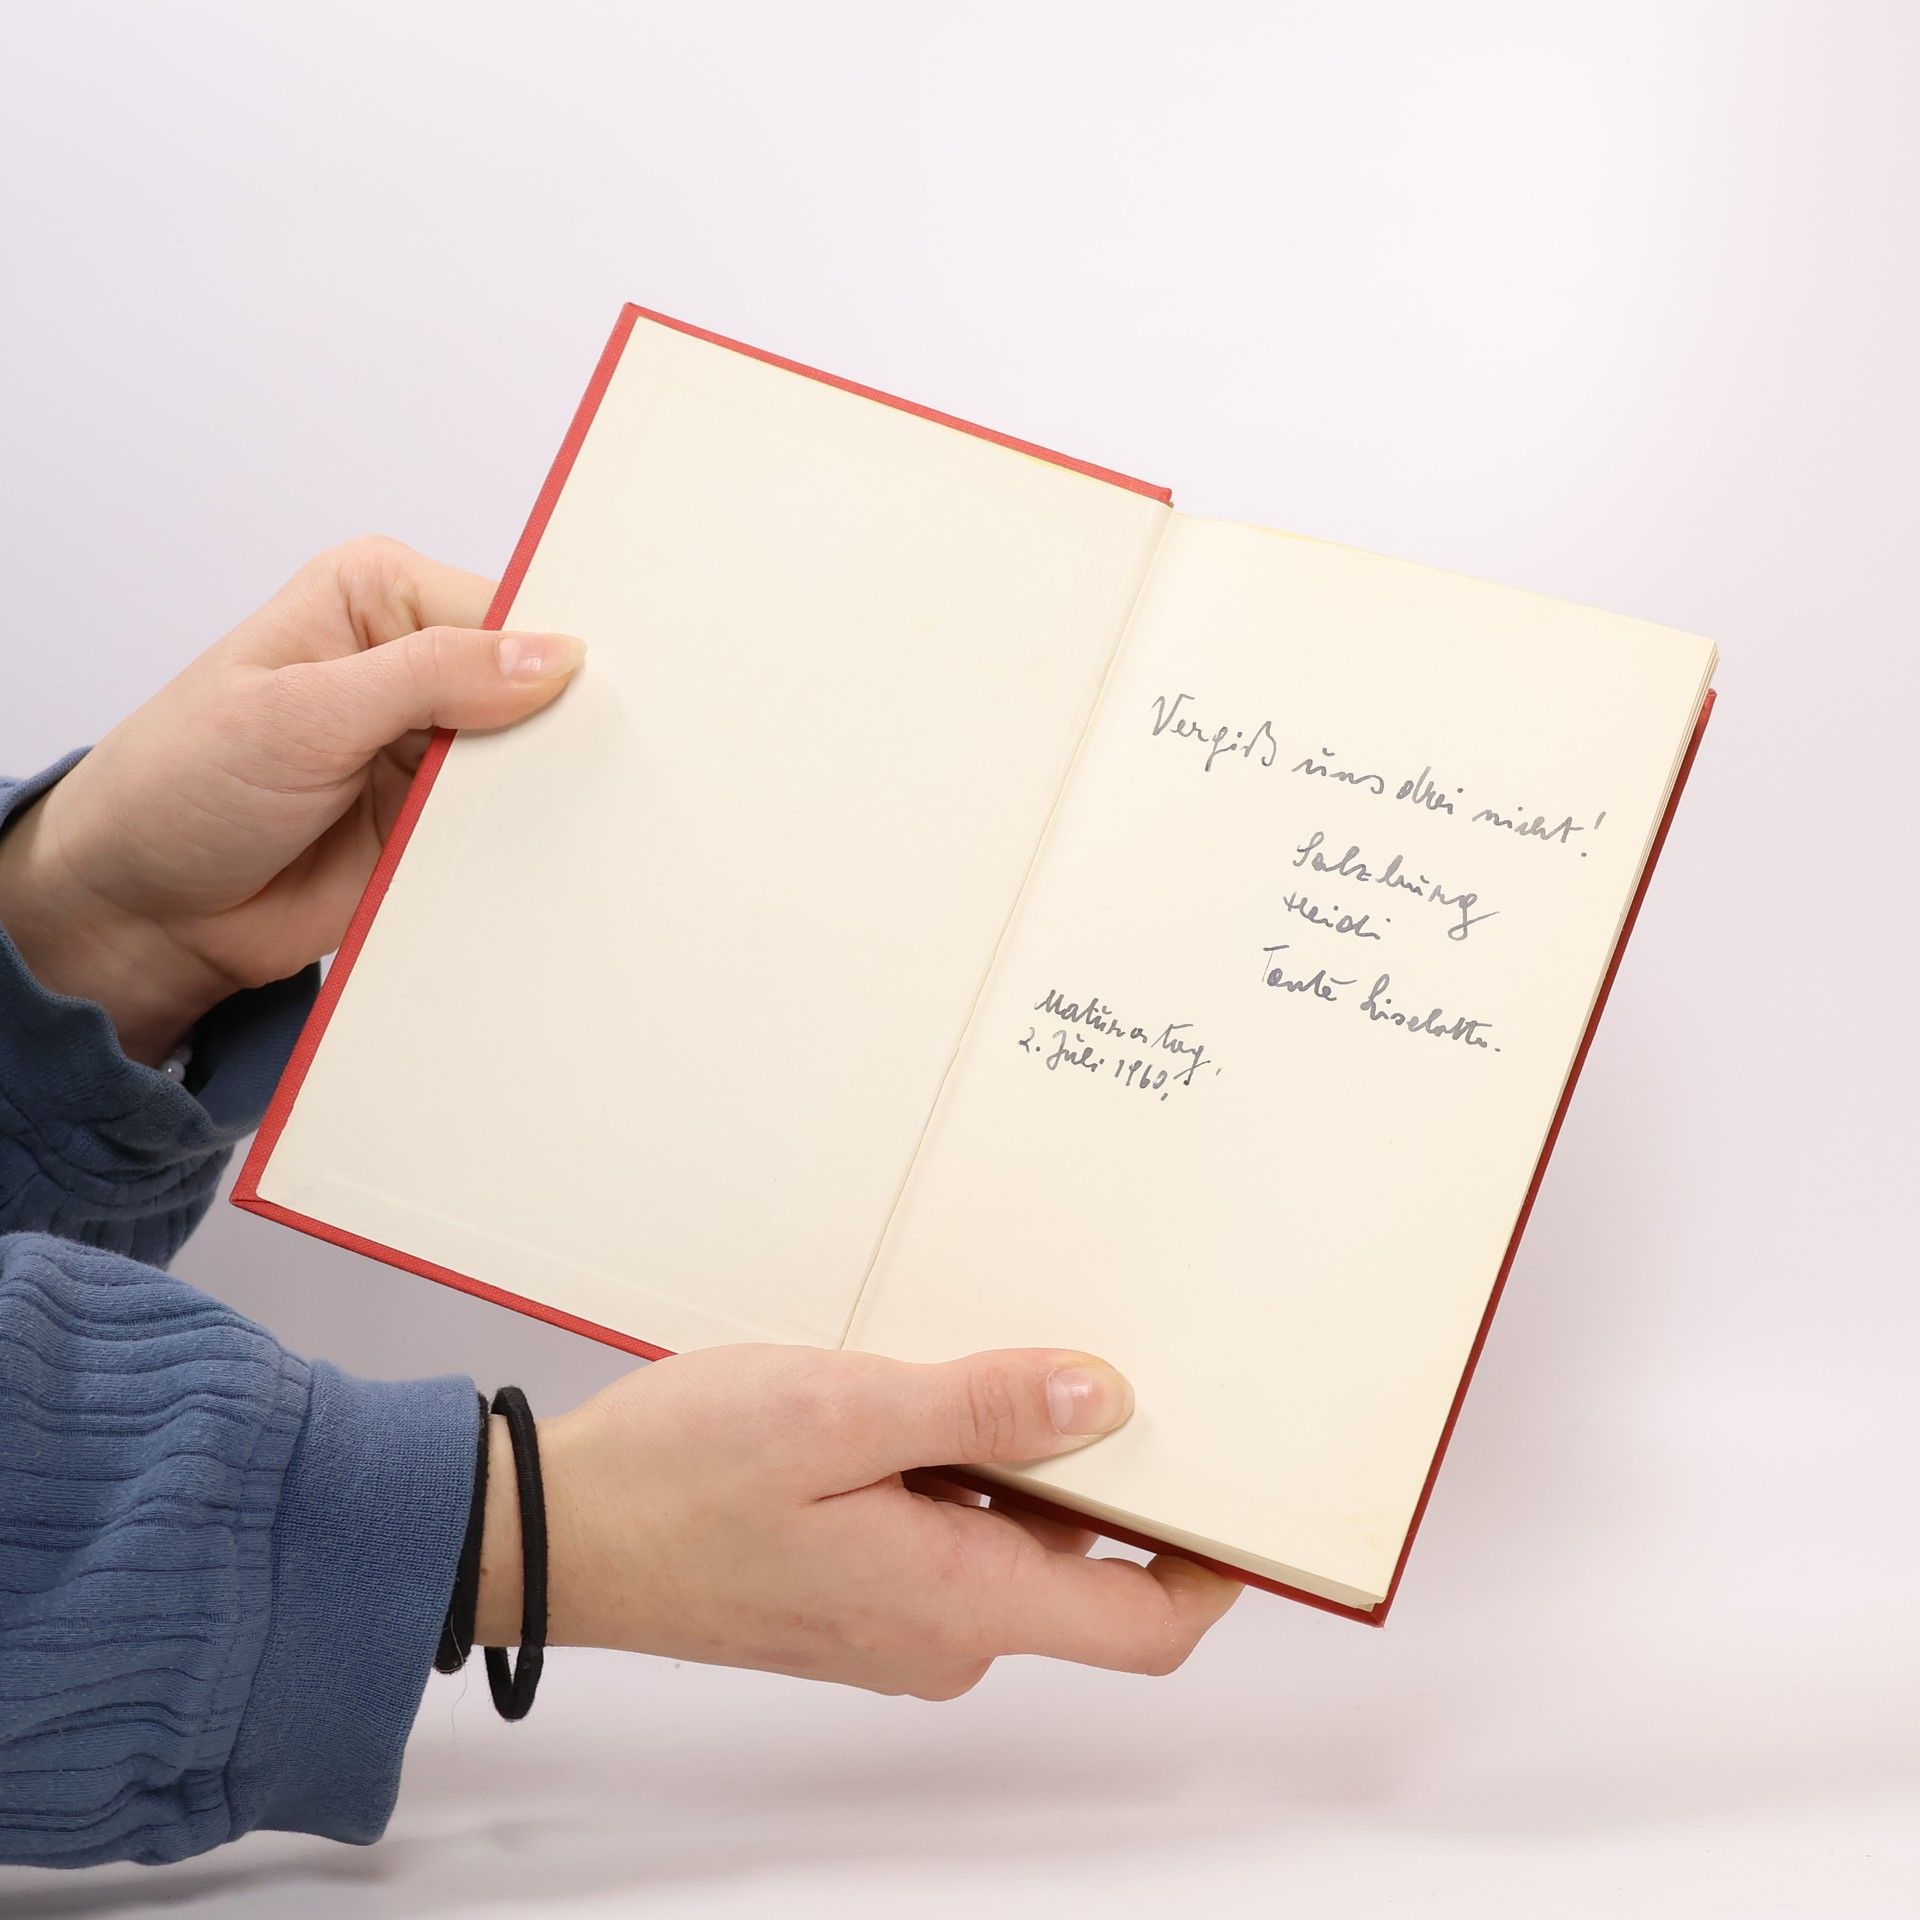 Vergiß uns drei nicht!
Salzburg
Heidi
Tante Liselotte.
Maturatag,
2. Juli 1960,